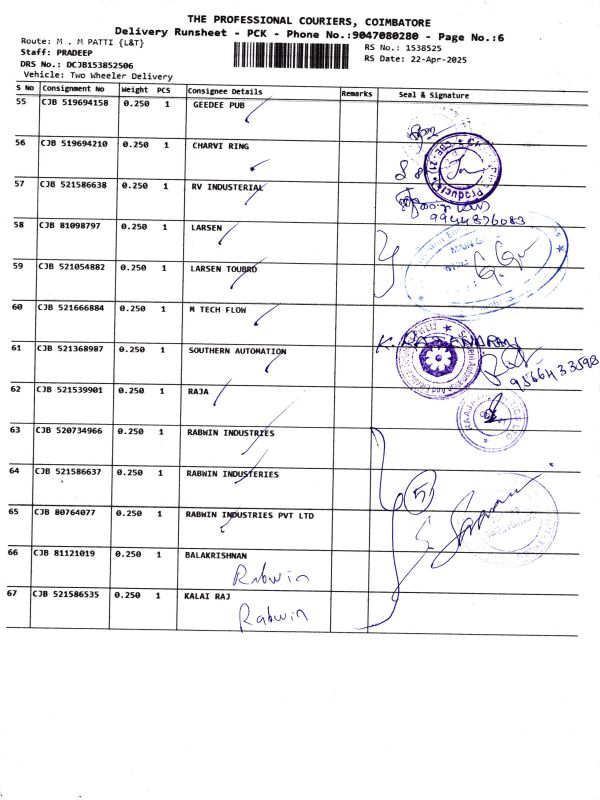 THE PROFESSIONAL COURIERS, COIMBATORE
Delivery Runsheet - PCK - Phone No.:9047080280 - Page No.:6
Route: M . M PATTI {L&T}
RS No.: 1538525
Staff: PRADEEP
RS Date: 22-Apr-2025
DRS No.: DCJB153852506
Vehicle: Two Wheeler Delivery
S No Consignment No Weight PCS Consignee Details Remarks Seal & Signature
55 CJB 519694158 0.250 1 GEEDEE PUB
56 CJB 519694210 0.250 1 CHARVI RING
57 CJB 521586638 0.250 1 RV INDUSTERIAL
9944876083
58 CJB 81098797 0.250 1 LARSEN
59 CJB 521054882 0.250 1 LARSEN TOUBRO
60 CJB 521666884 0.250 1 M TECH FLOW
61 CJB 521368987 0.250 1 SOUTHERN AUTOMATION
62 CJB 521539901 0.250 1 RAJA
63 CJB 520734966 0.250 1 RABWIN INDUSTRIES
64 CJB 521586637 0.250 1 RABWIN INDUSTERIES
5
65 CJB 80764077 0.250 1 RABWIN INDUSTRIES PVT LTD
66 CJB 81121019 0.250 1 BALAKRISHNAN
Rabwin
67 CJB 521586535 0.250 1 KALAI RAJ
Rabwin